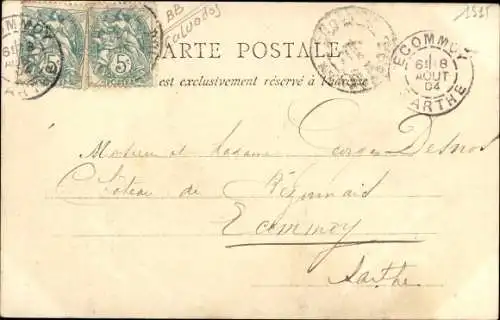 BB
Calvados
1525
CARTE POSTALE
est exclusivement réservé à l'adresse
5c
5c
ECOMMOY
6E/18
AOUT
04
SARTHE
Monsieur et Madame Georges Desnos
Château de Bézonnais
Ecommoy
Sarthe